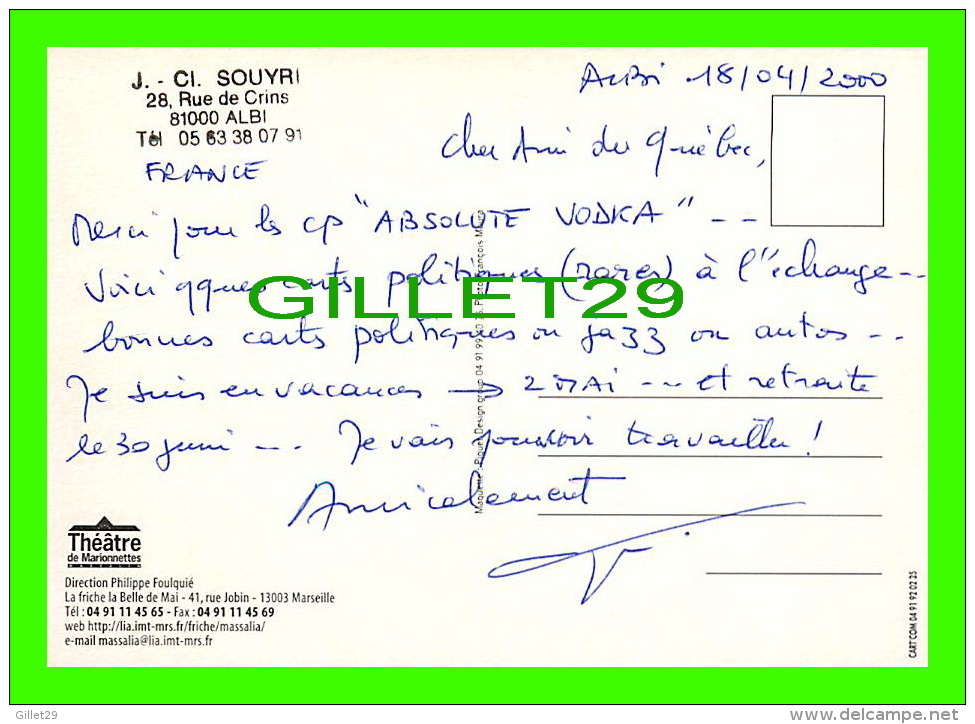 J. - Cl. SOUYRI
28, Rue de Crins
81000 ALBI
Tél 05 63 38 07 91
FRANCE
Albi 18/04/2000
Cher Ami du Québec,
Merci pour les cp "ABSOLUTE VODKA" - -
Voici qques cartes politiques (rares) à l'échange - -
GILLET29
bonnes cartes politiques ou jazz ou autos - -
Je suis en vacances → 2 MAI - - et retraite
le 30 juin - - Je vais pouvoir travailler !
Amicalement
Théâtre
de Marionnettes
MASSALIA
Direction Philippe Foulquié
La friche la Belle de Mai - 41, rue Jobin - 13003 Marseille
Tél : 04 91 11 45 65 - Fax : 04 91 11 45 69
web http://lia.imt-mrs.fr/friche/massalia/
e-mail massalia@lia.imt-mrs.fr
Design group 04 91 99
CART'COM 04 91 92 02 25
Gillet29
www.delcampe.net